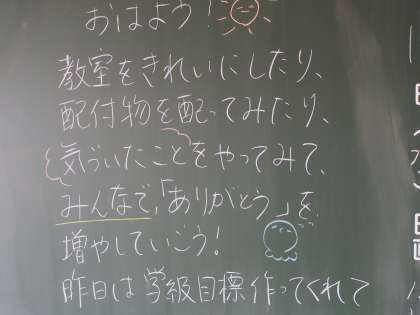 おはよう!
教室をきれいにしたり、
配付物を配ってみたり、
気づいたことをやってみて、
みんなで、「ありがとう」を
増やしていこう!
昨日は学級目標作ってくれて